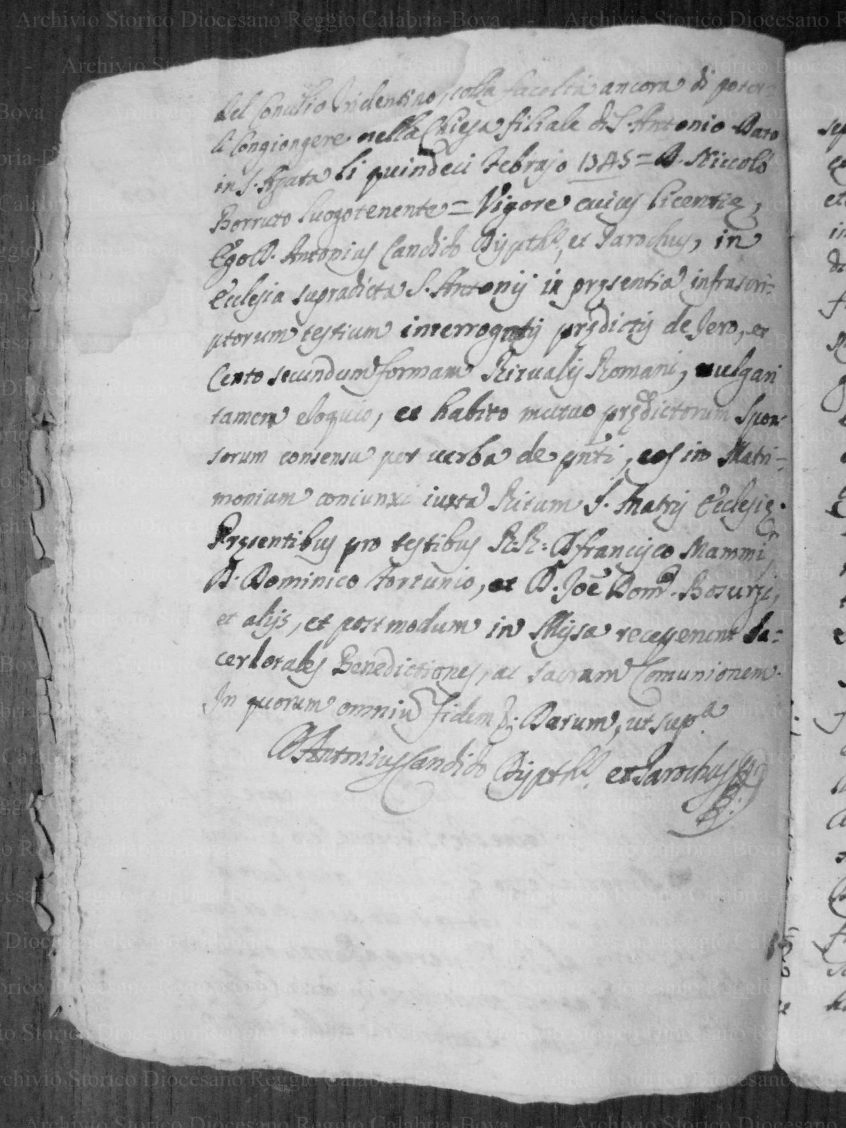 del Concilio Tridentino, colla facoltà ancora di poter-
li Congiongere nella Chiesa filiale di S. Antonio Dato
in S. Agata li quindeci Febrajo 1745 = D. Niccolò
Borruto Luogotenente = Vigore cuius licentię,
Ego D. Antonius Candido Dyptħ., et Parochus, in
Ecclesia supradicta S. Antonij in pręsentia infrascri-
ptorum testium interrogatis prędictis de Jero, et
Cento secundum formam Ritualis Romani, vulgari
tamen eloquio, et habito mutuo prędictorum Spon-
sorum consensu per verba de pñti, eos in Matri-
monium coniunxi iuxta Ritum S. Matris Ecclesię.
Pręsentibus pro testibus R.R. D. Francisco Mammì,
D. Dominico Fortunio, et D. Joē Domco. Bosurgi,
et alijs, et postmodum in Missa receperunt Sa-
cerdotales Benedictiones, ac sacram Comunionem.
In quorum omniū fidem &; Datum, ut supa.
D. Antonius Candido Dyptħ. et Parochus
Archivio Storico Diocesano Reggio Calabria-Bova